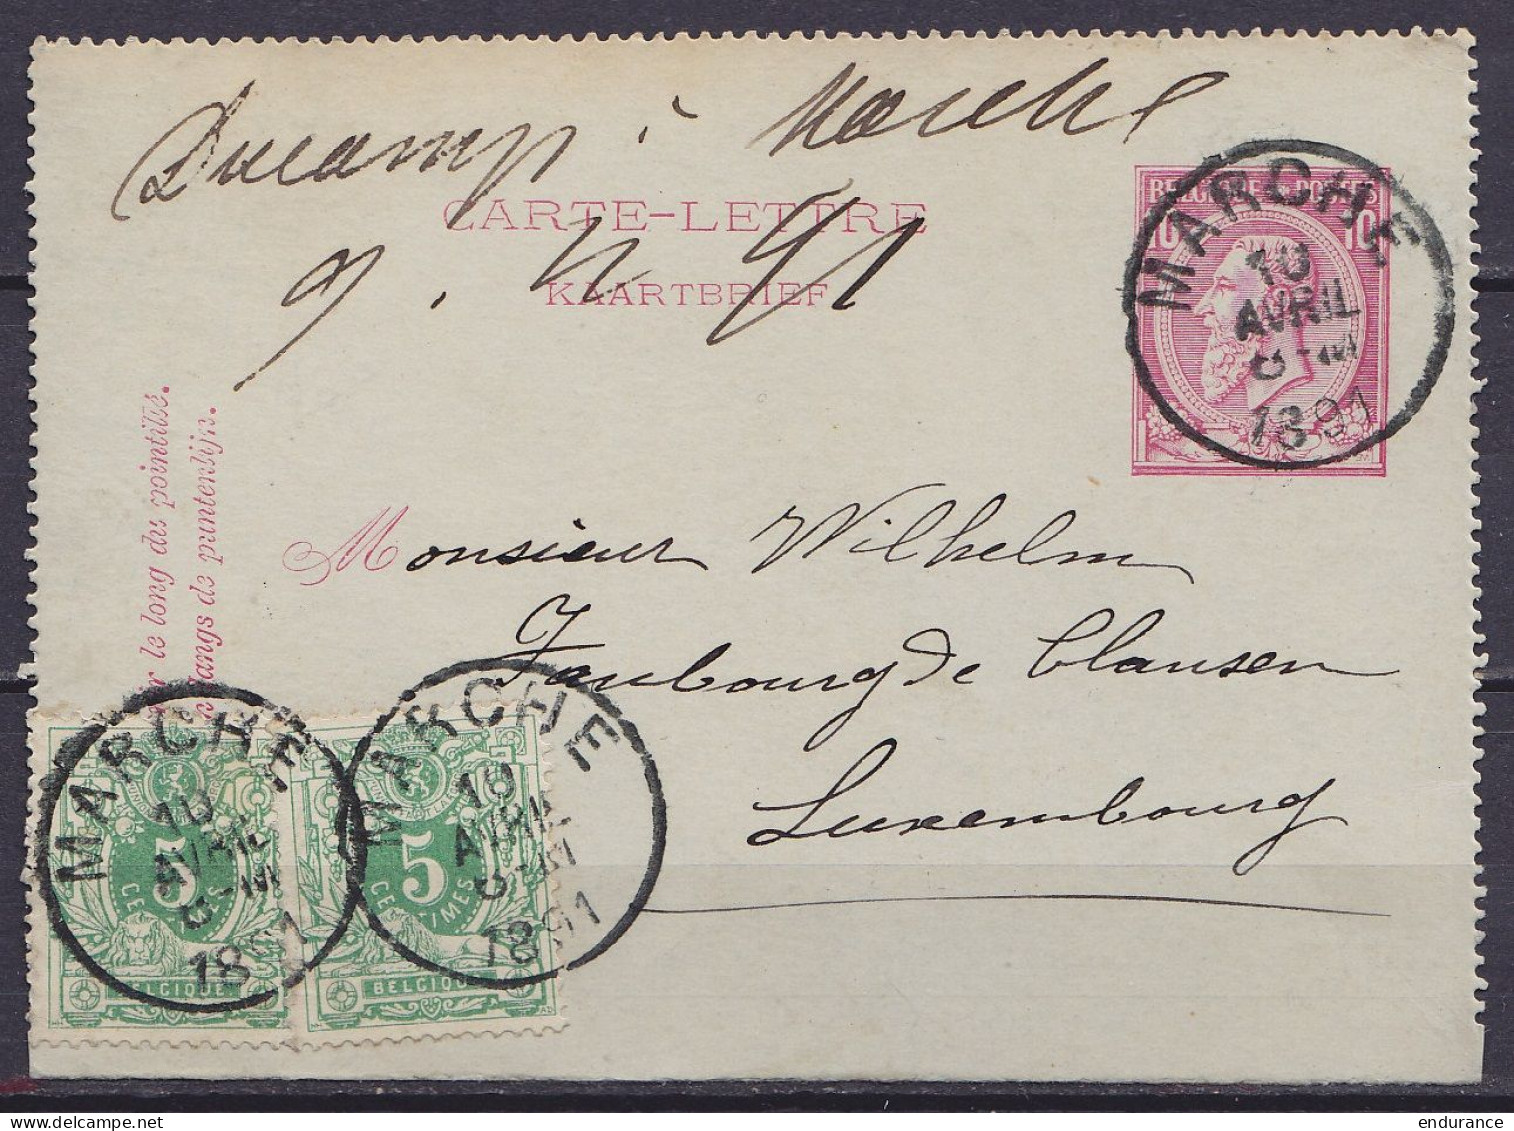 Ducamp à Marche
9.4.91
CARTE-LETTRE
KAARTBRIEF
BELGIQUE POSTES
10 10
MARCHE
10
AVRIL
8-M
1891
le long du pointillé.
langs de puntenlijn.
Monsieur Wilhelm
Faubourg de Clausen
Luxembourg
MARCHE
10
AVRIL
8-M
1891
5
CENTIMES
BELGIQUE
MARCHE
10
AVRIL
8-M
1891
5
CENTIMES
BELGIQUE
endurance